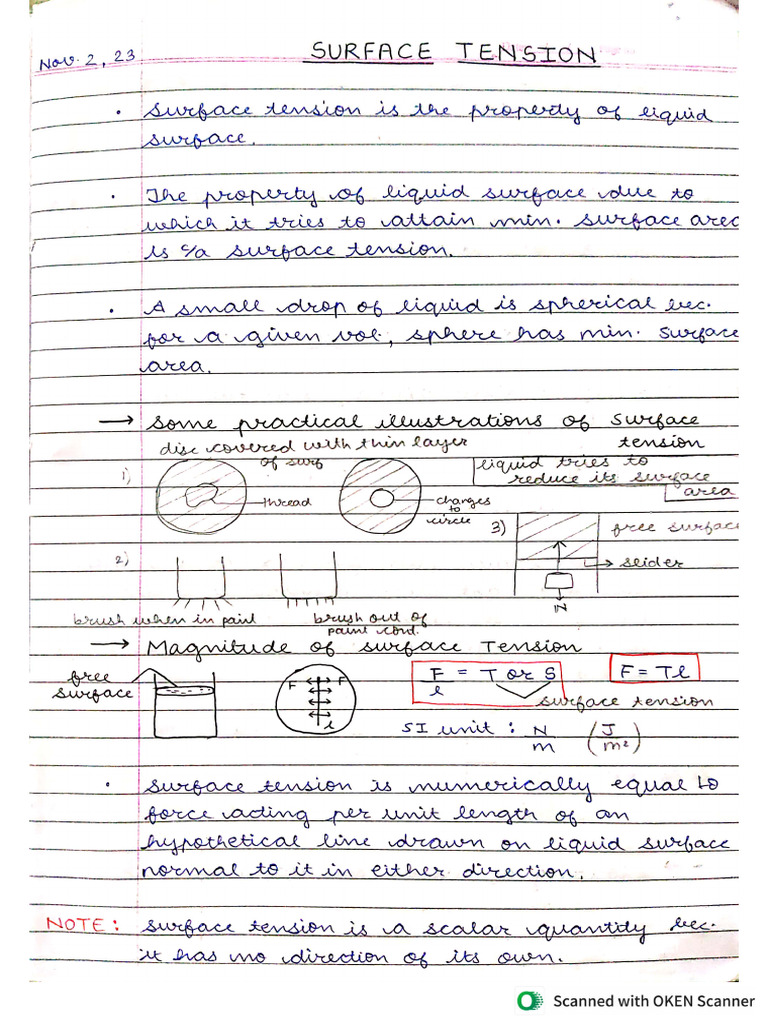 SURFACE TENSION
Nov. 2, 23
• Surface tension is the property of liquid
surface.
• The property of liquid surface due to
which it tries to attain min. surface area
is c/a surface tension.
• A small drop of liquid is spherical bec.
for a given vol., sphere has min. surface
area.
→ Some practical illustrations of surface
tension
disc covered with thin layer
of surf
1)
thread
changes
to
circle
liquid tries to
reduce its surface
area
3)
free surface
slider
W
2)
brush when in paint
brush out of
paint cond.
→ Magnitude of surface Tension
free
surface
F F
l
F/l = T or S
F = Tl
surface tension
SI unit : N/m (J/m²)
• Surface tension is numerically equal to
force acting per unit length of an
hypothetical line drawn on liquid surface
normal to it in either direction.
NOTE: Surface tension is a scalar quantity bec.
it has no direction of its own.
Scanned with OKEN Scanner